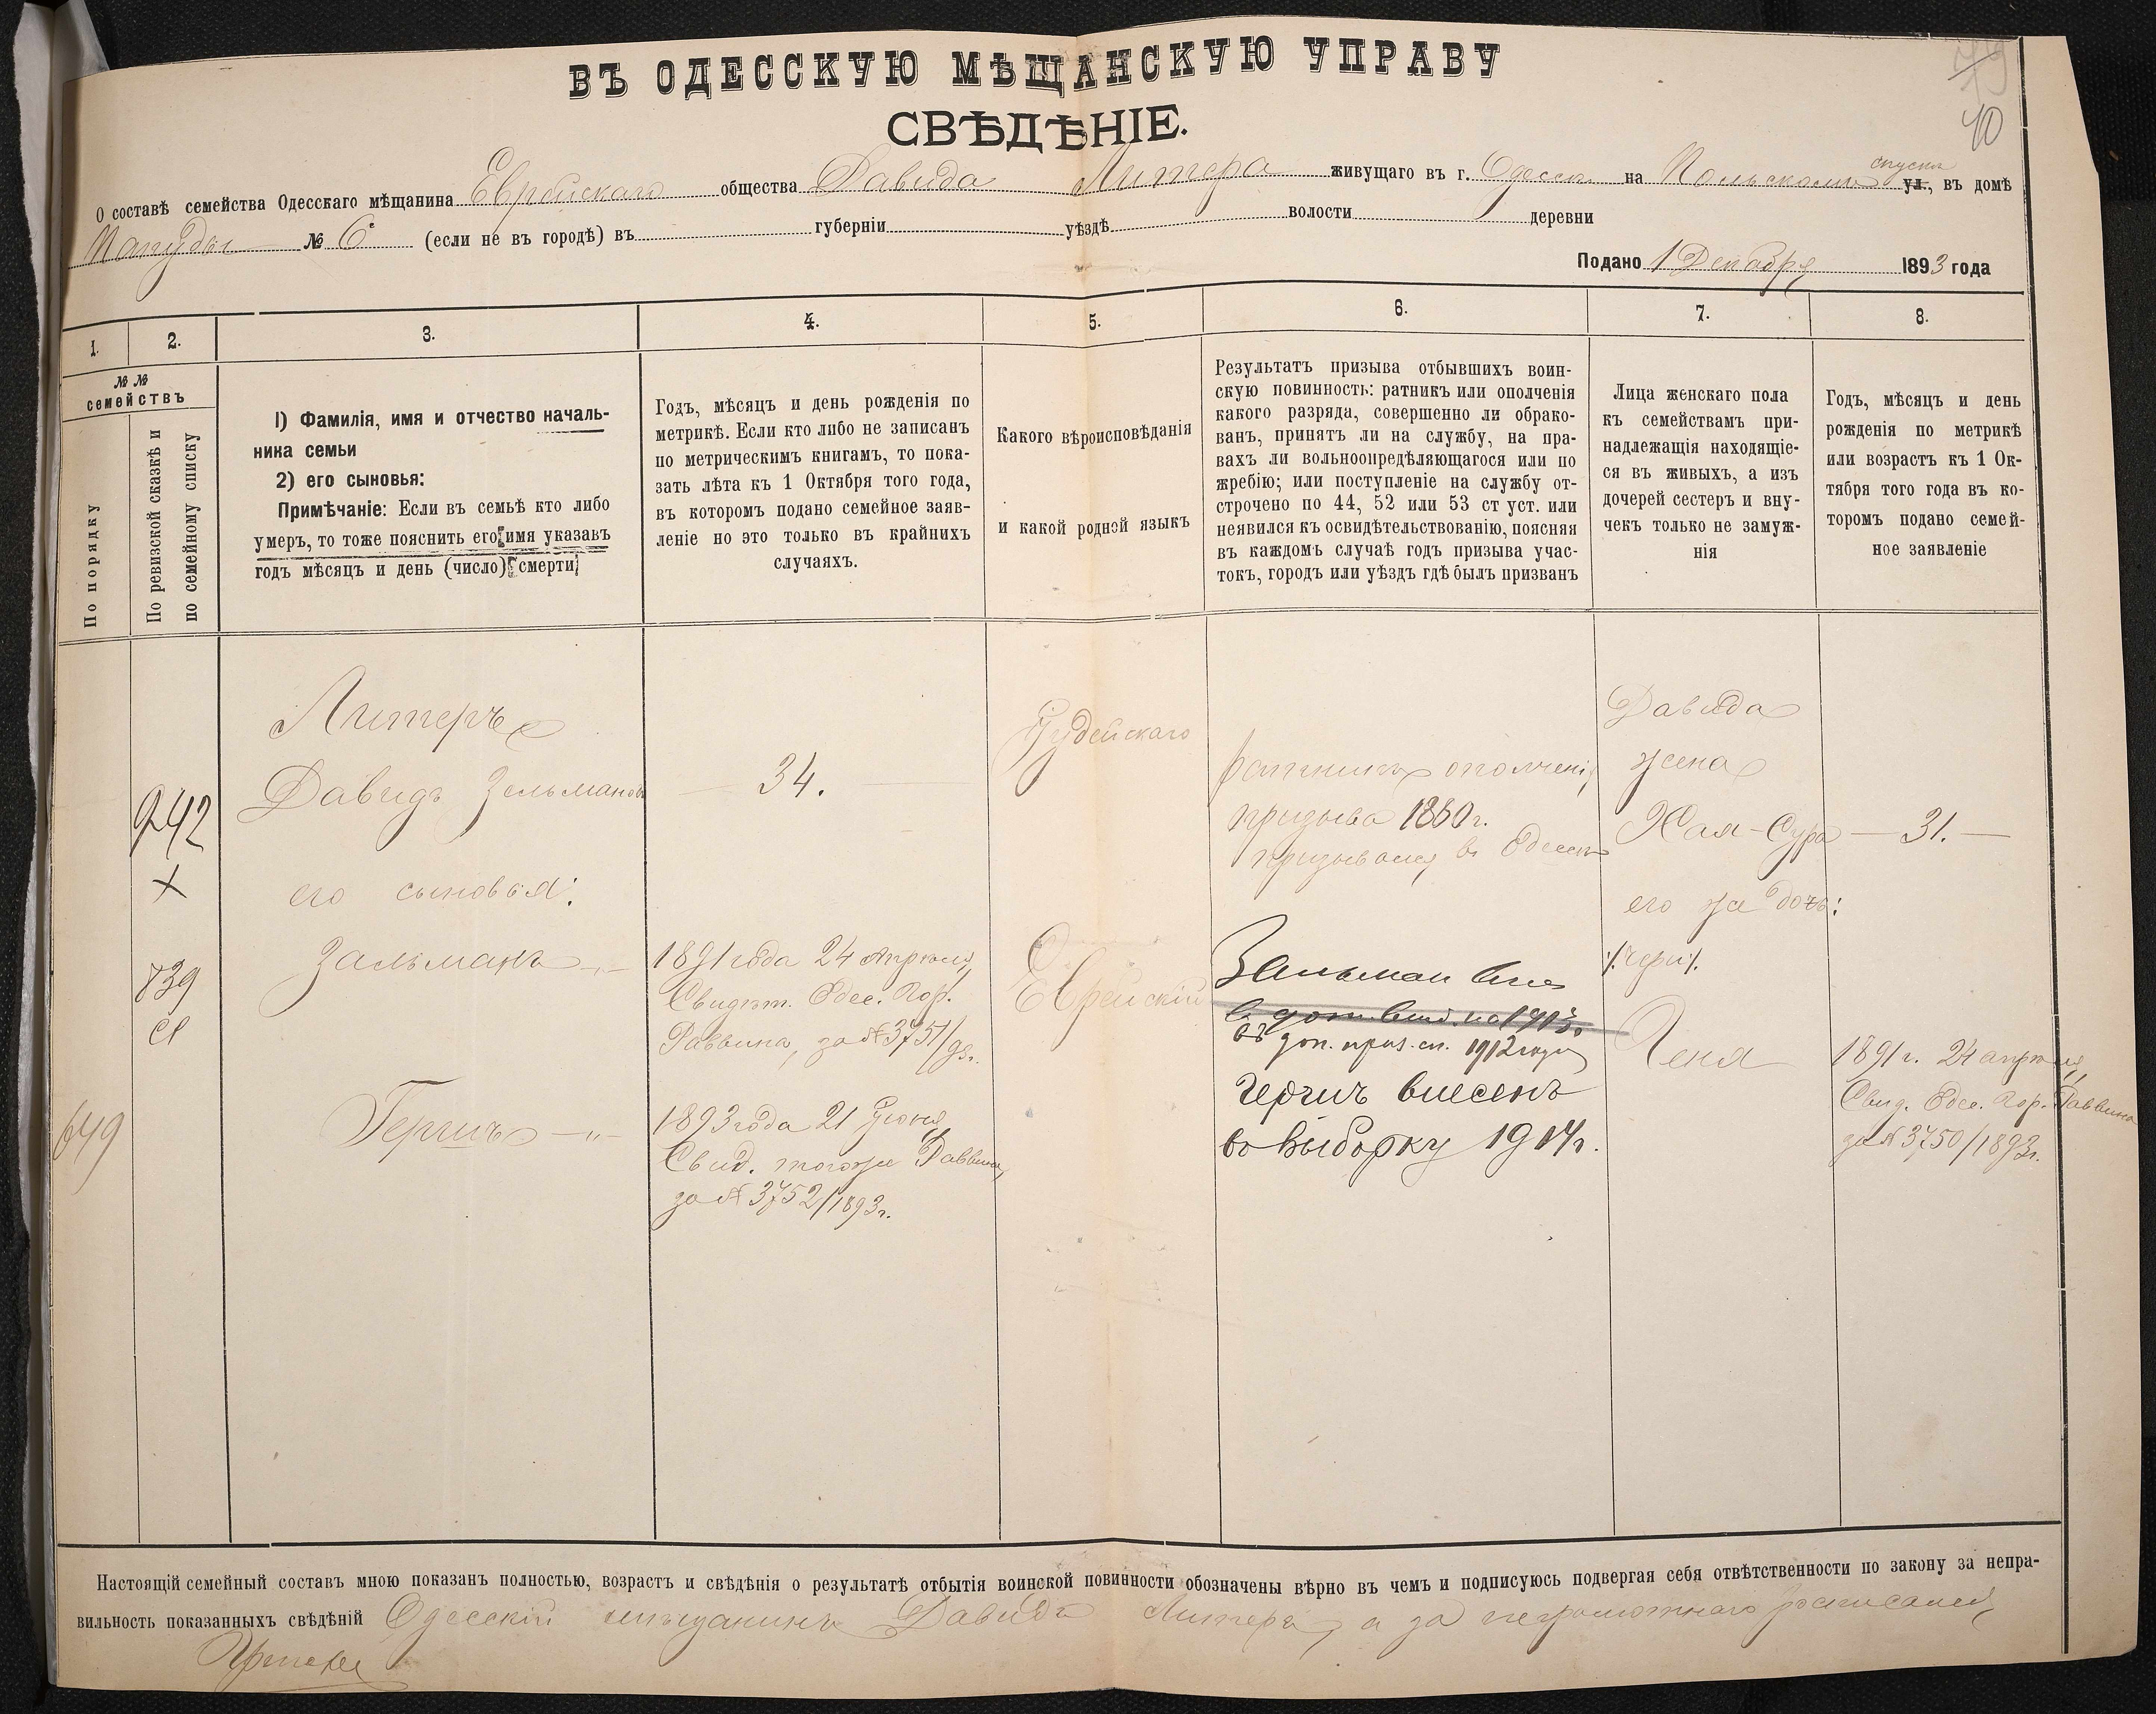 79
40
ВЪ ОДЕССКУЮ МѢЩАНСКУЮ УПРАВУ
СВѢДѢНІЕ.
О составѣ семейства Одесскаго мѣщанина Еврейскаго общества Давида Литера живущаго въ г. Одессѣ на Польскомъ спускѣ ул., въ домѣ
№ 6 (если не въ городѣ) въ губерніи уѣздѣ волости деревни
Подано 1 Декабря 1893 года
1.
2.
3.
4.
5.
6.
7.
8.
№ №
семействъ
По порядку
По ревизской сказкѣ и
по семейному списку
1) Фамилія, имя и отчество началь-
ника семьи
2) его сыновья:
Примѣчаніе: Если въ семьѣ кто либо
умеръ, то тоже пояснить его имя указавъ
годъ мѣсяцъ и день (число) смерти
Годъ, мѣсяцъ и день рожденія по
метрикѣ. Если кто либо не записанъ
по метрическимъ книгамъ, то пока-
зать лѣта къ 1 Октября того года,
въ которомъ подано семейное заяв-
леніе но это только въ крайнихъ
случаяхъ.
Какого вѣроисповѣданія
и какой родной языкъ
Результатъ призыва отбывшихъ воин-
скую повинность: ратникъ или ополченія
какого разряда, совершенно ли обрако-
ванъ, принятъ ли на службу, на пра-
вахъ ли вольноопредѣляющагося или по
жребію; или поступленіе на службу от-
строчено по 44, 52 или 53 ст уст. или
неявился къ освидѣтельствованію, поясняя
въ каждомъ случаѣ годъ призыва учас-
токъ, городъ или уѣздъ гдѣ былъ призванъ
Лица женскаго пола
къ семействамъ при-
надлежащія находящіе-
ся въ живыхъ, а изъ
дочерей сестеръ и вну-
чекъ только не замуж-
нія
Годъ, мѣсяцъ и день
рожденія по метрикѣ
или возрастъ къ 1 Ок-
тября того года въ ко-
торомъ подано семей-
ное заявленіе
942
Х
839
649
Литеръ
Давидъ Зельмановъ
его сыновья:
Зальманъ — " —
Гершъ — " —
— 34. —
1891 года 24 Апрѣля,
Свидѣт. Одес. Гор.
Раввина, за № 3751/93г.
1893 года 21 Іюня,
Свид. тогоже Раввина,
за № 3752/1893г.
Іудейскаго
Еврейскій
Ратникъ ополченія
призыва 1880 г.
призывался въ Одессѣ
Зальман
въ доп. приз. сп. 1912 года
Гершъ внесенъ
въ выборку 1914 г.
Давида
жена
Хая-Сура — 31. —
его же дочь:
Геня
1891 г. 24 апрѣля,
Свид. Одес. Гор. Раввина
за № 3750/1893г.
Настоящій семейный составъ мною показанъ полностью, возрастъ и свѣдѣнія о результатѣ отбытія воинской повинности обозначены вѣрно въ чемъ и подписуюсь подвергая себя отвѣтственности по закону за непра-
вильность показанныхъ свѣдѣній Одесскій мѣщанинъ Давидъ Литеръ, а за неграмотнаго росписался